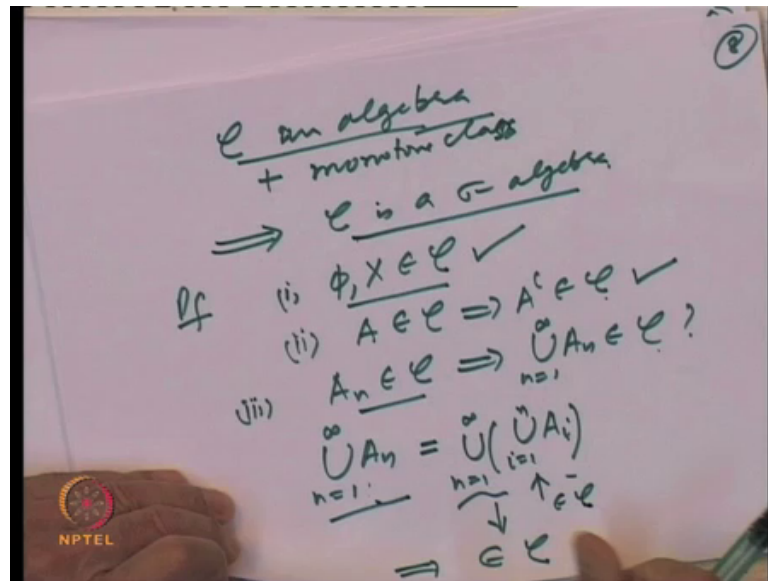 ⑧
𝒞 an algebra
+ monotone class
⟹ 𝒞 is a σ-algebra
Pf (i) Φ, X ∈ 𝒞 ✓
(ii) A ∈ 𝒞 ⟹ Aᶜ ∈ 𝒞 ✓
(iii) Aₙ ∈ 𝒞 ⟹ ∞ ∪ n=1 Aₙ ∈ 𝒞 ?
∞ ∪ n=1 Aₙ = ∞ ∪ n=1 ( n ∪ i=1 Aᵢ )
↓ ↑ ∈ 𝒞
⟹ ∈ 𝒞
NPTEL